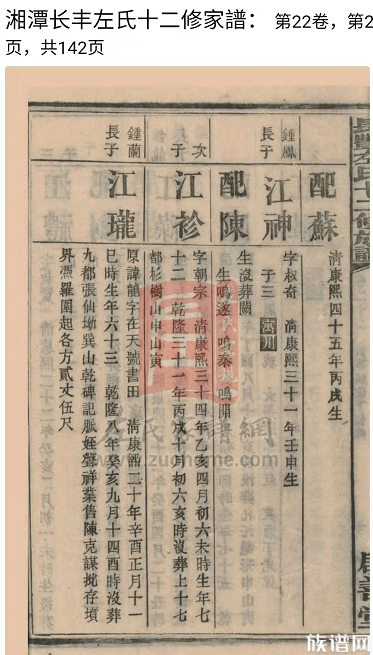 湘潭长丰左氏十二修家譜： 第22卷，第2
页，共142页
配蘇
清康熙四十五年丙戌生
鍾鳳
長子
江神
字椒奇 清康熙三十一年壬申生
子三
配陳
生沒葬闕
生鳴遂 鳴泰 鳴開
次子
江袗
字朝宗 清康熙三十四年乙亥四月初六未時生年七
十二 乾隆三十一年丙戌十月初六亥時沒葬上十七
都杉樹山申山寅
鍾蘭
長子
江瓏
原諱 字在天號書田 清康熙二十年辛酉正月十一
巳時生年六十三 乾隆八年癸亥九月十四酉時沒葬
九都張仙坳巽山乾碑記脈姪聲祥業售陳克謀批存墳
界憑羅圍起各方貳丈伍尺
長豐左氏十二修族譜
www.zuoheme.com
族谱网